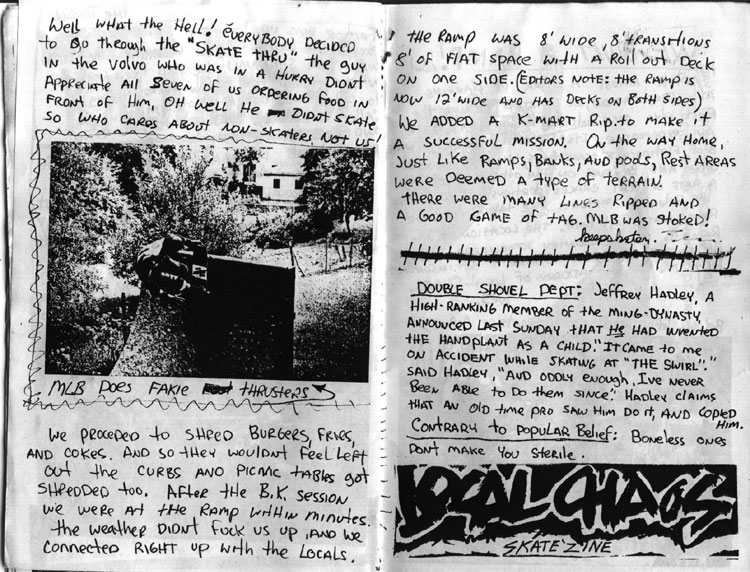 Well what the Hell! Everybody decided
to go through the "SKATE THRU" the guy
in the Volvo who was in a hurry didnt
appreciate all seven of us ordering food in
front of him, oh well he didnt skate
so who cares about non-skaters not us!
MLB DOES FAKIE THRUSTERS
We proceded to shred burgers, fries,
and cokes. And so they wouldnt feel left
out the curbs and picnic tables got
shredded too. After the B.K. session
we were at the ramp within minutes.
The weather didnt fuck us up, and we
connected right up with the locals.
The ramp was 8' wide, 8' transitions
8' of flat space with a roll out deck
on one side. (Editors note: the ramp is
now 12' wide and has decks on both sides)
We added a K-Mart Rip. to make it
a successful mission. On the way home,
just like ramps, banks, and pools, rest areas
were deemed a type of terrain.
There were many lines ripped and
a good game of tag. MLB was stoked!
DOUBLE SHOVEL DEPT: Jeffrey Hadley, a
high-ranking member of the Ming-Dynasty,
announced last Sunday that he had invented
the handplant as a child. "It came to me
on accident while skating at "The Swirl"."
said Hadley, "and oddly enough, Ive never
been able to do them since." Hadley claims
that an old time pro saw him do it, and copied
him.
Contrary to popular belief: Boneless ones
dont make you sterile.
LOCAL CHAOS
SKATE'ZINE